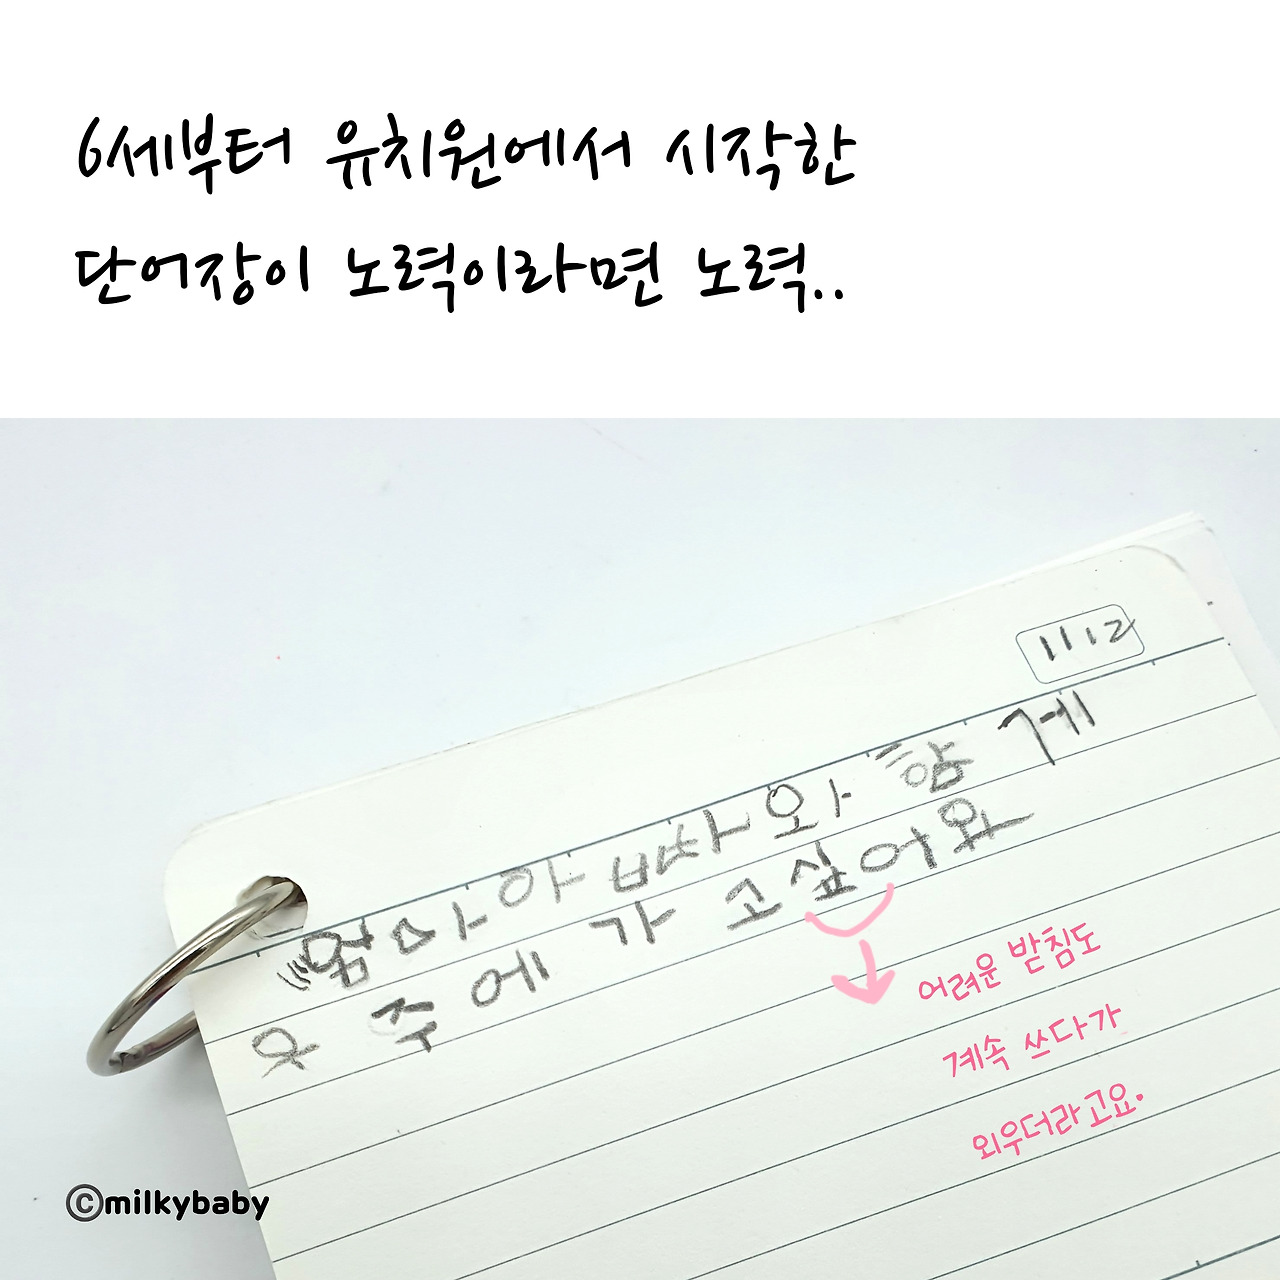 6세부터 유치원에서 시작한
단어장이 노력이라면 노력..
1112
엄마아빠와 함게
우주에 가고싶어요
어려운 받침도
계속 쓰다가
외우더라고요.
©milkybaby